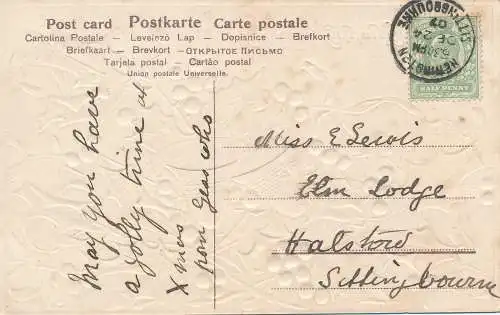 Post card Postkarte Carte postale
Cartolina Postale – Levelező Lap – Dopisnice – Brefkort
Briefkaart – Brevkort – ОТКРЫТОЕ ПИСЬМО
Tarjeta postal – Cartão postal
Union postale Universelle.
SITTINGBOURNE
DE 24
07
HALFPENNY
May you have
a jolly time at
Xmas
from
Miss E Lewis
Elm Lodge
Halstow
Sittingbourne